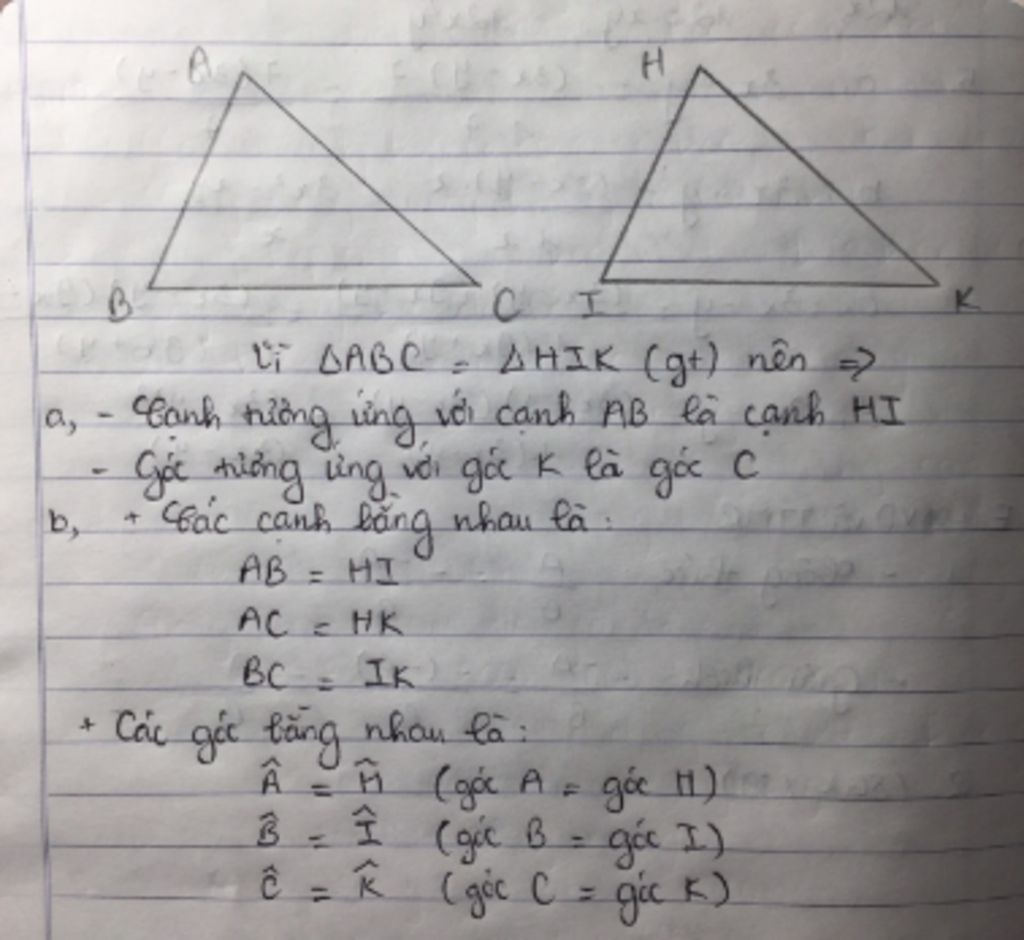 A
H
B
C
I
K
Vì ΔABC = ΔHIK (gt) nên =>
a, - Cạnh tương ứng với cạnh AB là cạnh HI
- Góc tương ứng với góc K là góc C
b, + Các cạnh bằng nhau là:
AB = HI
AC = HK
BC = IK
+ Các góc bằng nhau là:
Â = Ĥ (góc A = góc H)
B̂ = Î (góc B = góc I)
Ĉ = K̂ (góc C = góc K)